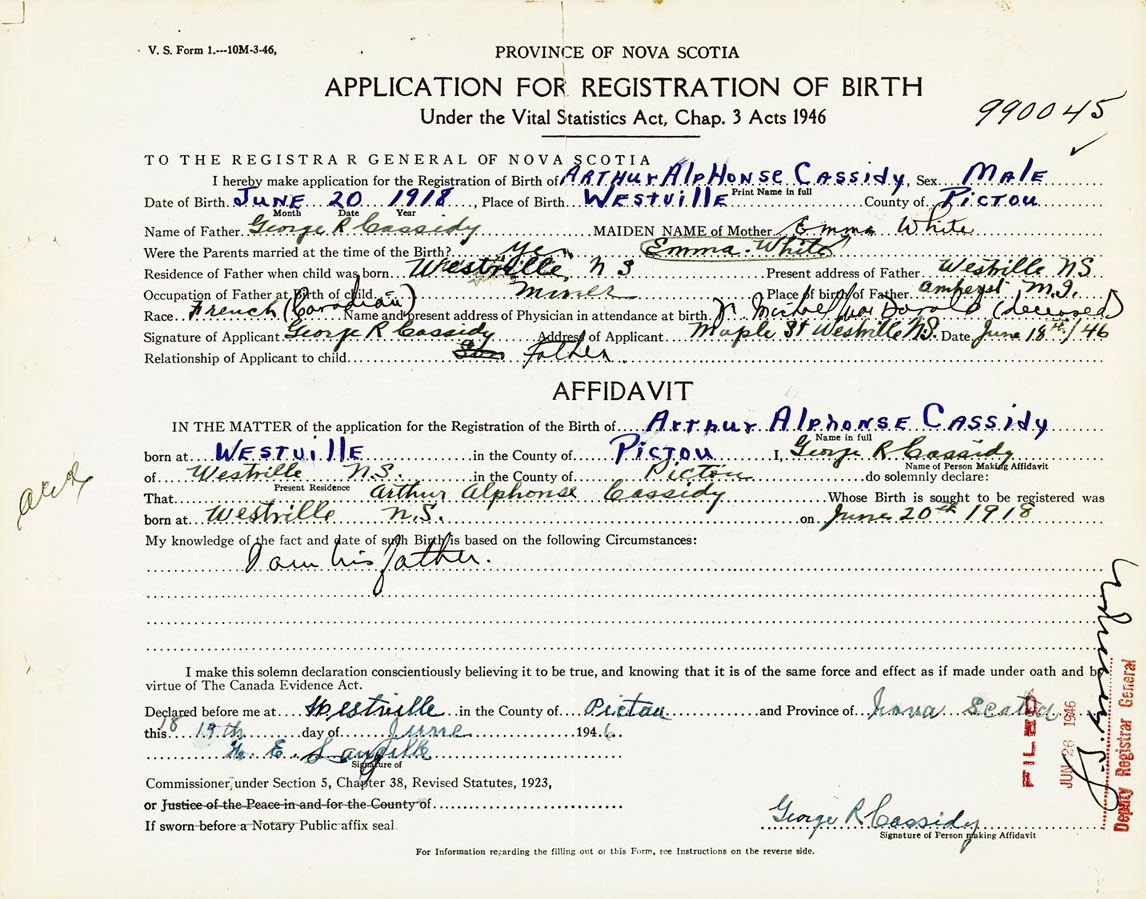 V. S. Form 1.---10M-3-46,
PROVINCE OF NOVA SCOTIA
APPLICATION FOR REGISTRATION OF BIRTH
Under the Vital Statistics Act, Chap. 3 Acts 1946
990045
TO THE REGISTRAR GENERAL OF NOVA SCOTIA
I hereby make application for the Registration of Birth of ARTHUR ALPHONSE CASSIDY, Sex MALE
Print Name in full
Date of Birth JUNE 20 1918, Place of Birth WESTVILLE County of PICTOU
Month Date Year
Name of Father George R Cassidy MAIDEN NAME of Mother Emma White
Were the Parents married at the time of the Birth? Yes Emma White
Residence of Father when child was born Westville, N S Present address of Father Westville NS
Occupation of Father at Birth of child Miner Place of birth of Father Amherst
Race French (Canadian) Name and present address of Physician in attendance at birth (deceased)
Signature of Applicant George R Cassidy Address of Applicant Maple St Westville N.S. Date June 18th/46
Relationship of Applicant to child Father
AFFIDAVIT
IN THE MATTER of the application for the Registration of the Birth of Arthur Alphonse Cassidy
Name in full
born at WESTVILLE in the County of PICTOU I, George R Cassidy
Name of Person Making Affidavit
of Westville N.S. in the County of Pictou do solemnly declare:
Present Residence
That Arthur Alphonse Cassidy Whose Birth is sought to be registered was
born at Westville N.S. on June 20th 1918
My knowledge of the fact and date of such Birth is based on the following Circumstances:
I am his father.
I make this solemn declaration conscientiously believing it to be true, and knowing that it is of the same force and effect as if made under oath and by
virtue of The Canada Evidence Act.
Declared before me at Westville in the County of Pictou and Province of Nova Scotia
this 18 19th day of June 1946.
Signature of
Commissioner under Section 5, Chapter 38, Revised Statutes, 1923,
or Justice of the Peace in and for the County of
If sworn before a Notary Public affix seal
George R Cassidy
Signature of Person making Affidavit
For Information regarding the filling out of this Form, see Instructions on the reverse side.
FILED
JUN 26 1946
Deputy Registrar General